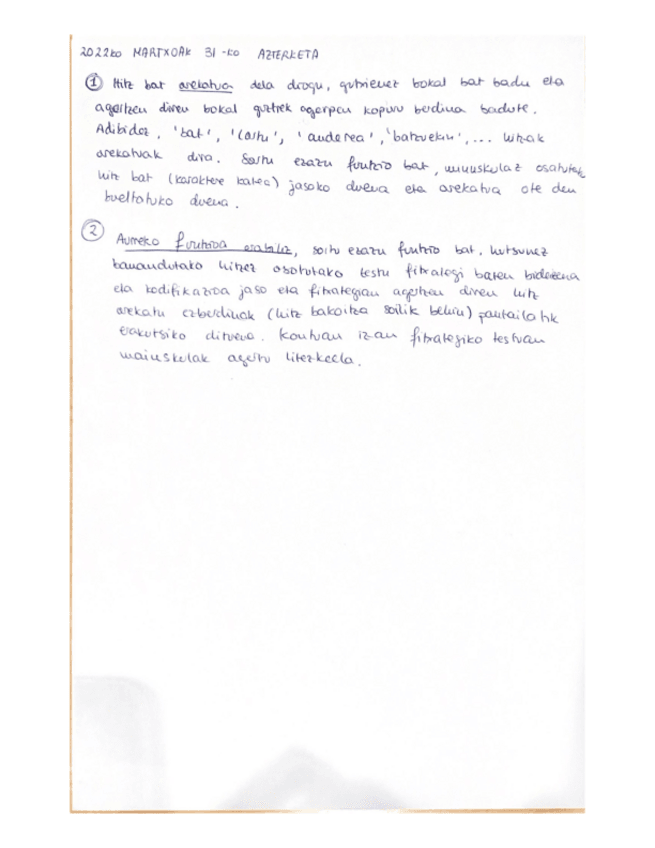 2022ko MARTXOAK 31-ko AZTERKETA
① Hitz bat orekatua dela diogu, gutxienez bokal bat badu eta
agertzen diren bokal guztiek agerpen kopuru berdina badute.
Adibidez, 'bat', 'lortu', 'anderea', 'batzuekin', ... hitzak
orekatuak dira. Sortu ezazu funtzio bat, minuskulaz osatutako
hitz bat (karaktere katea) jasoko duena eta orekatua ote den
bueltatuko duena.
② Aurreko funtzioa erabiliz, sortu ezazu funtzio bat, hutsunez
banandutako hitzez osotutako testu fitxategi baten bidezena
eta kodifikazioa jaso eta fitxategian agertzen diren hitz
orekatu ezberdinak (hitz bakoitza soilik behin) pantailatik
erakutsiko dituena. Kontuan izan fitxategiko testuan
maiuskulak agertu litezkeela.